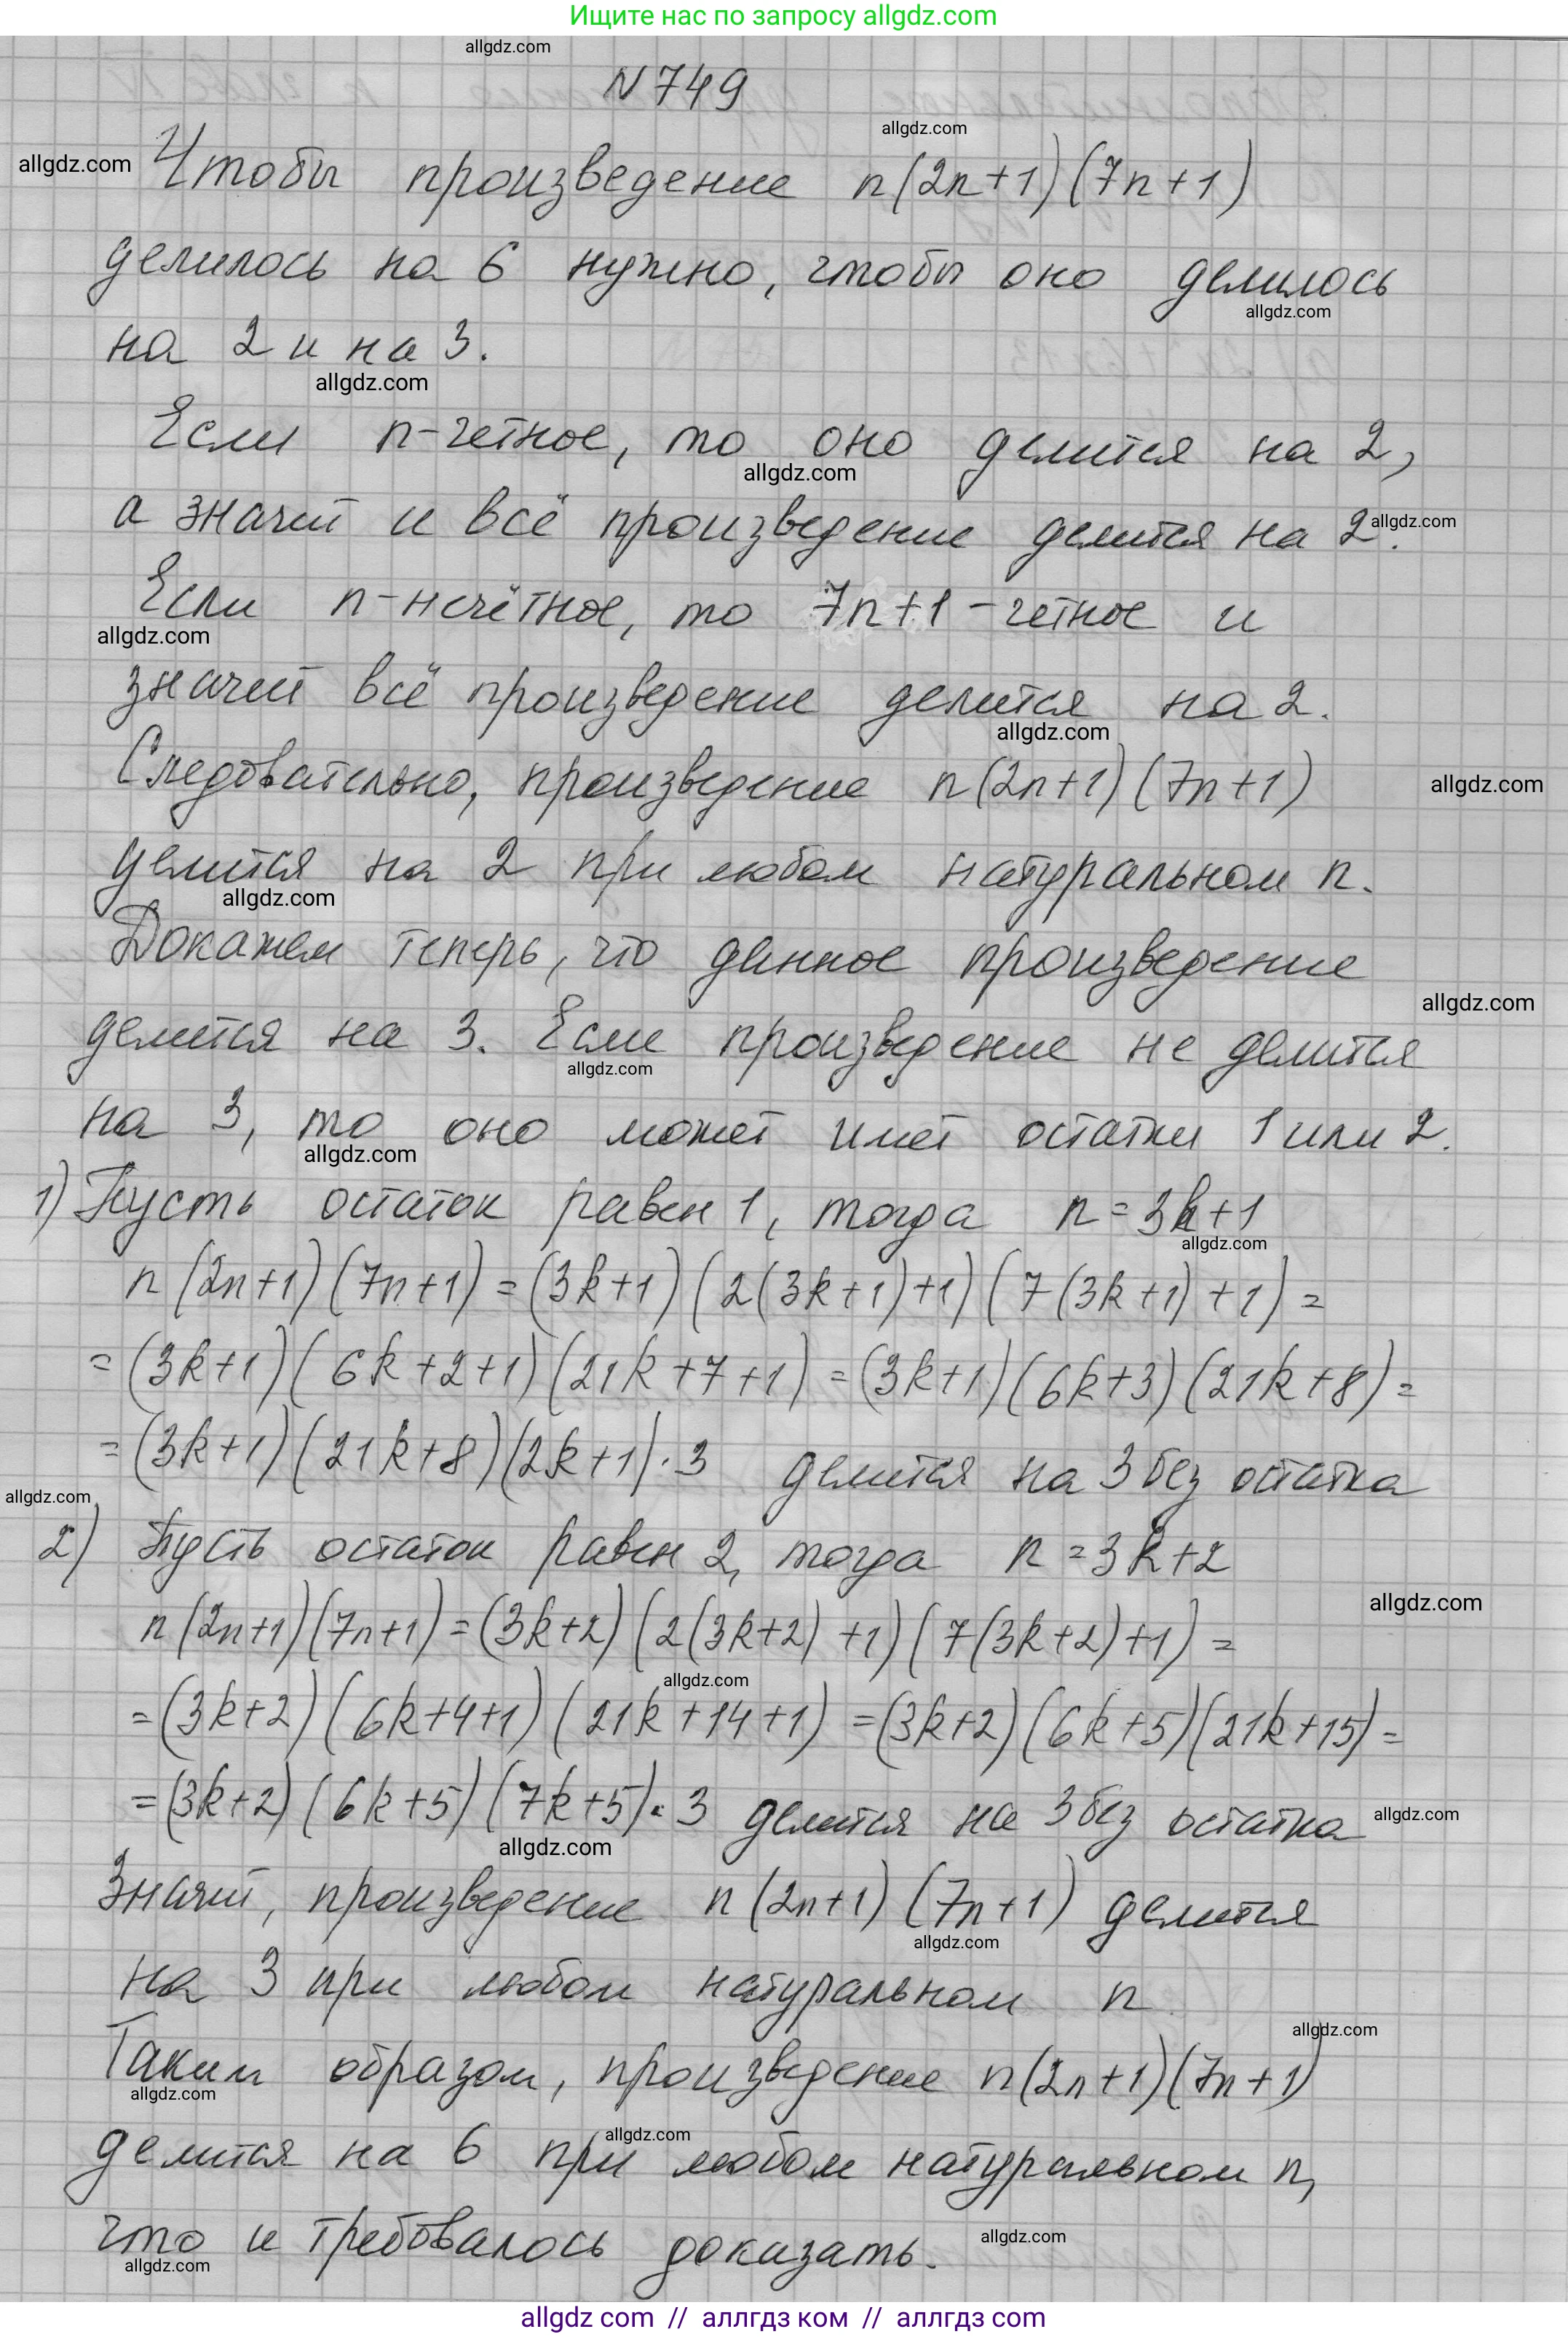 Ищите нас по запросу allgdz.com
allgdz.com
N 749
allgdz.com
allgdz.com
Чтобы произведение n(2n+1)(7n+1)
делилось на 6 нужно, чтобы оно делилось
allgdz.com
на 2 и на 3.
allgdz.com
Если n-четное, то оно делится на 2,
allgdz.com
а значит и всё произведение делится на 2.
allgdz.com
Если n-нечётное, то 7n+1 - четное и
allgdz.com
значит всё произведение делится на 2.
allgdz.com
Следовательно, произведение n(2n+1)(7n+1)
allgdz.com
делится на 2 при любом натуральном n.
allgdz.com
Докажем теперь, что данное произведение
allgdz.com
делится на 3. Если произведение не делится
allgdz.com
на 3, то оно может имет остатки 1 или 2.
allgdz.com
1) Пусть остаток равен 1, тогда n = 3k+1
allgdz.com
n(2n+1)(7n+1) = (3k+1)(2(3k+1)+1)(7(3k+1)+1) =
= (3k+1)(6k+2+1)(21k+7+1) = (3k+1)(6k+3)(21k+8) =
= (3k+1)(21k+8)(2k+1)·3 делится на 3 без остатка
allgdz.com
2) Пусть остаток равен 2, тогда n = 3k+2
allgdz.com
n(2n+1)(7n+1) = (3k+2)(2(3k+2)+1)(7(3k+2)+1) =
allgdz.com
= (3k+2)(6k+4+1)(21k+14+1) = (3k+2)(6k+5)(21k+15) =
= (3k+2)(6k+5)(7k+5)·3 делится на 3 без остатка
allgdz.com
allgdz.com
Значит, произведение n(2n+1)(7n+1) делится
allgdz.com
на 3 при любом натуральном n
allgdz.com
Таким образом, произведение n(2n+1)(7n+1)
allgdz.com
allgdz.com
делится на 6 при любом натуральном n,
что и требовалось доказать.
allgdz.com
allgdz.com
allgdz com // аллгдз ком // аллгдз com